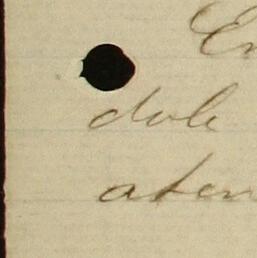 En
dole
aten